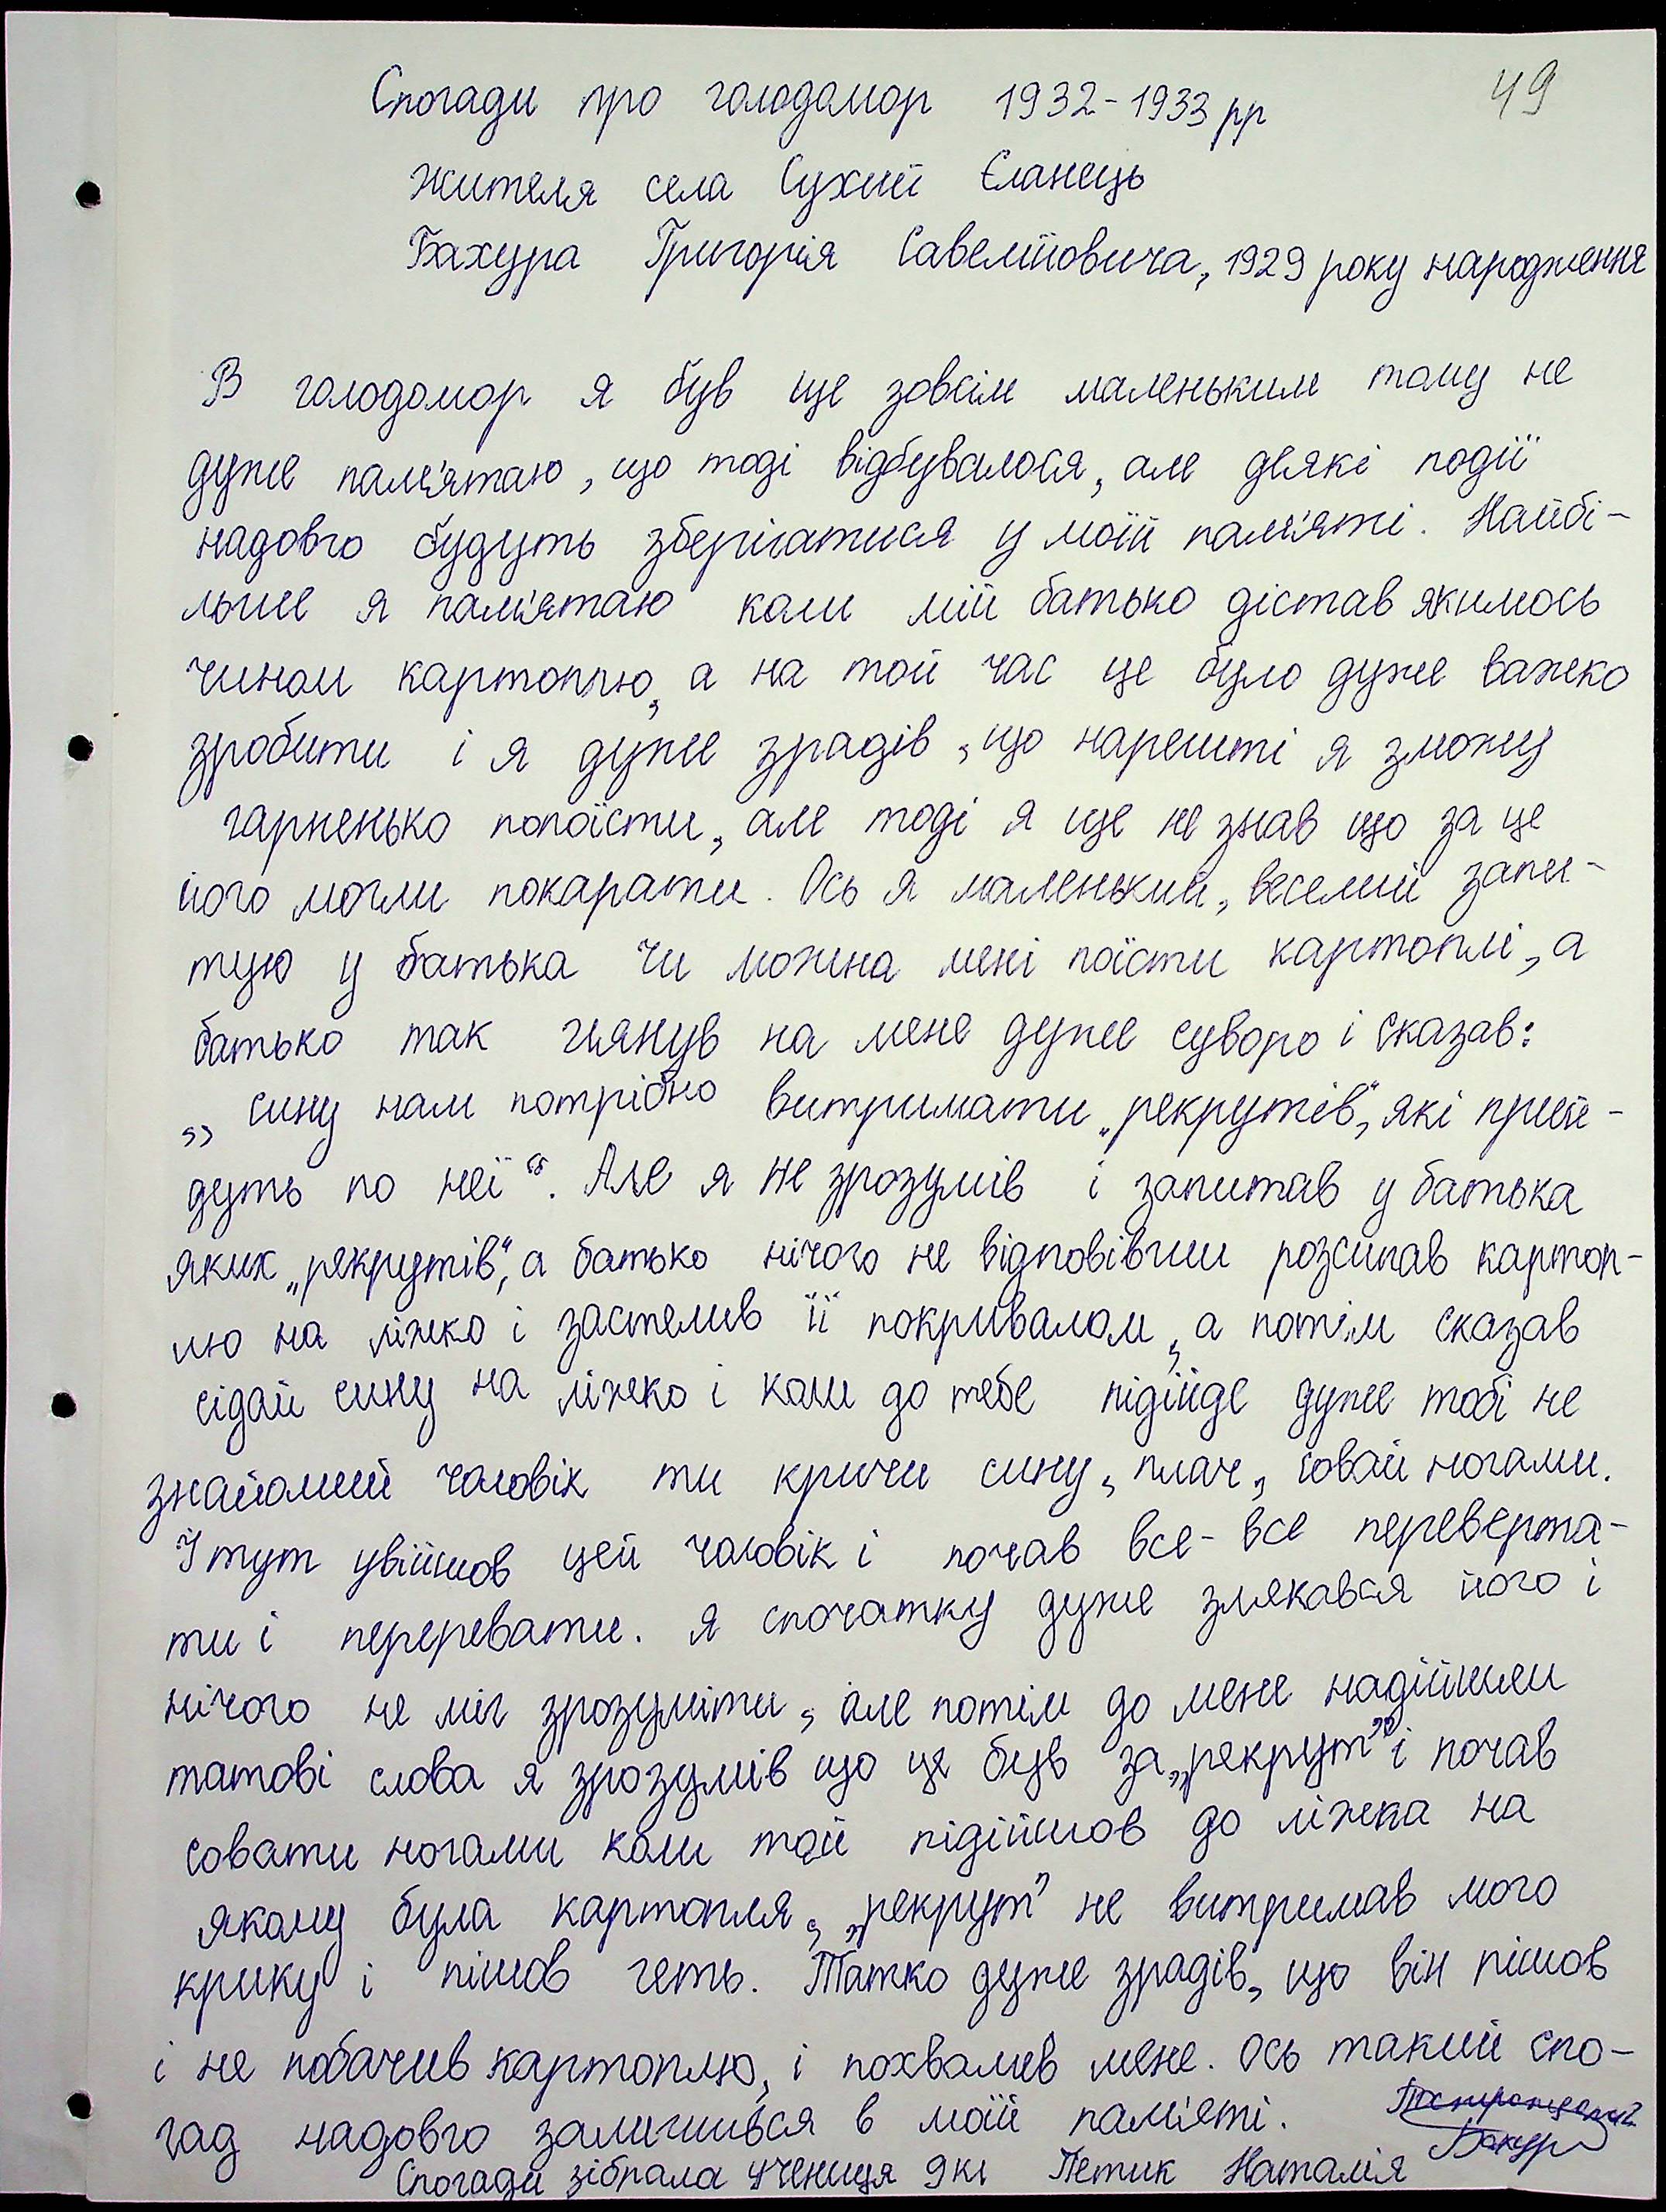 49
Спогади про голодомор 1932-1933 рр
жителя села Сухий Єланець
Бахура Григорія Савелійовича, 1929 року народження
В голодомор я був ще зовсім маленьким тому не
дуже пам'ятаю, що тоді відбувалося, але деякі події
надовго будуть зберігатися у моїй пам'яті. Найбі-
льше я пам'ятаю коли мій батько дістав якимось
чином картоплю, а на той час це було дуже важко
зробити і я дуже зрадів, що нарешті я зможу
гарненько попоїсти, але тоді я ще не знав що за це
його могли покарати. Ось я маленький, веселий запи-
тую у батька чи можна мені поїсти картоплі, а
батько так глянув на мене дуже суворо і сказав:
„ сину нам потрібно витримати „рекрутів", які прий-
дуть по неї". Але я не зрозумів і запитав у батька
яких „рекрутів", а батько нічого не відповівши розсипав картоп-
лю на ліжко і застелив її покривалом, а потім сказав
сідай сину на ліжко і коли до тебе підійде дуже тобі не
знайомий чоловік ти кричи сину, плач, совай ногами.
І тут увійшов цей чоловік і почав все-все переверта-
ти і переревати. Я спочатку дуже злякався його і
нічого не міг зрозуміти, але потім до мене надійшли
татові слова я зрозумів що це був за „рекрут" і почав
совати ногами коли той підійшов до ліжка на
якому була картопля, „рекрут" не витримав мого
крику і пішов геть. Татко дуже зрадів, що він пішов
і не побачив картоплю, і похвалив мене. Ось такий спо-
гад надовго залишився в моїй пам'яті.
Бахур
Спогади зібрала учениця 9 кл Петик Наталія